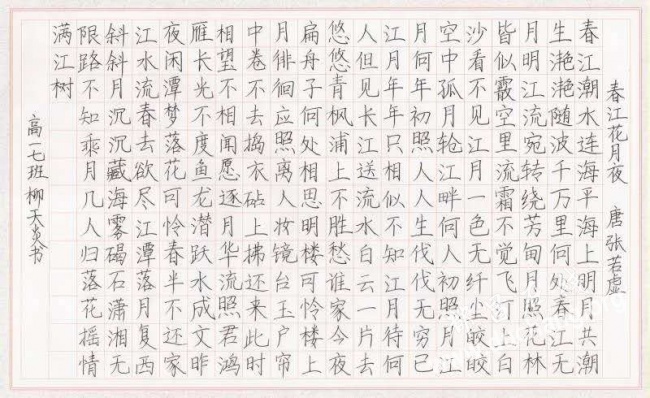 春江花月夜 唐 张若虚
春江潮水连海平海上明月共潮
生滟滟随波千万里何处春江无
月明江流宛转绕芳甸月照花林
皆似霰空里流霜不觉飞汀上白
沙看不见江月一色无纤尘皎皎
空中孤月轮江畔何人初照月江
月何年初照人人生代代无穷已
江月年年只相似不知江月待何
人但见长江送流水白云一片去
悠悠青枫浦上不胜愁谁家今夜
扁舟子何处相思明楼可怜楼上
月徘徊应照离人妆镜台玉户帘
中卷不去捣衣砧上拂还来此时
相望不相闻愿逐月华流照君鸿
雁长光不度鱼龙潜跃水成文昨
夜闲潭梦落花可怜春半不还家
江水流春去欲尽江潭落月复西
斜斜月沉沉藏海雾碣石潇湘无
限路不知乘月几人归落花摇情
满江树
高一七班柳天炎书